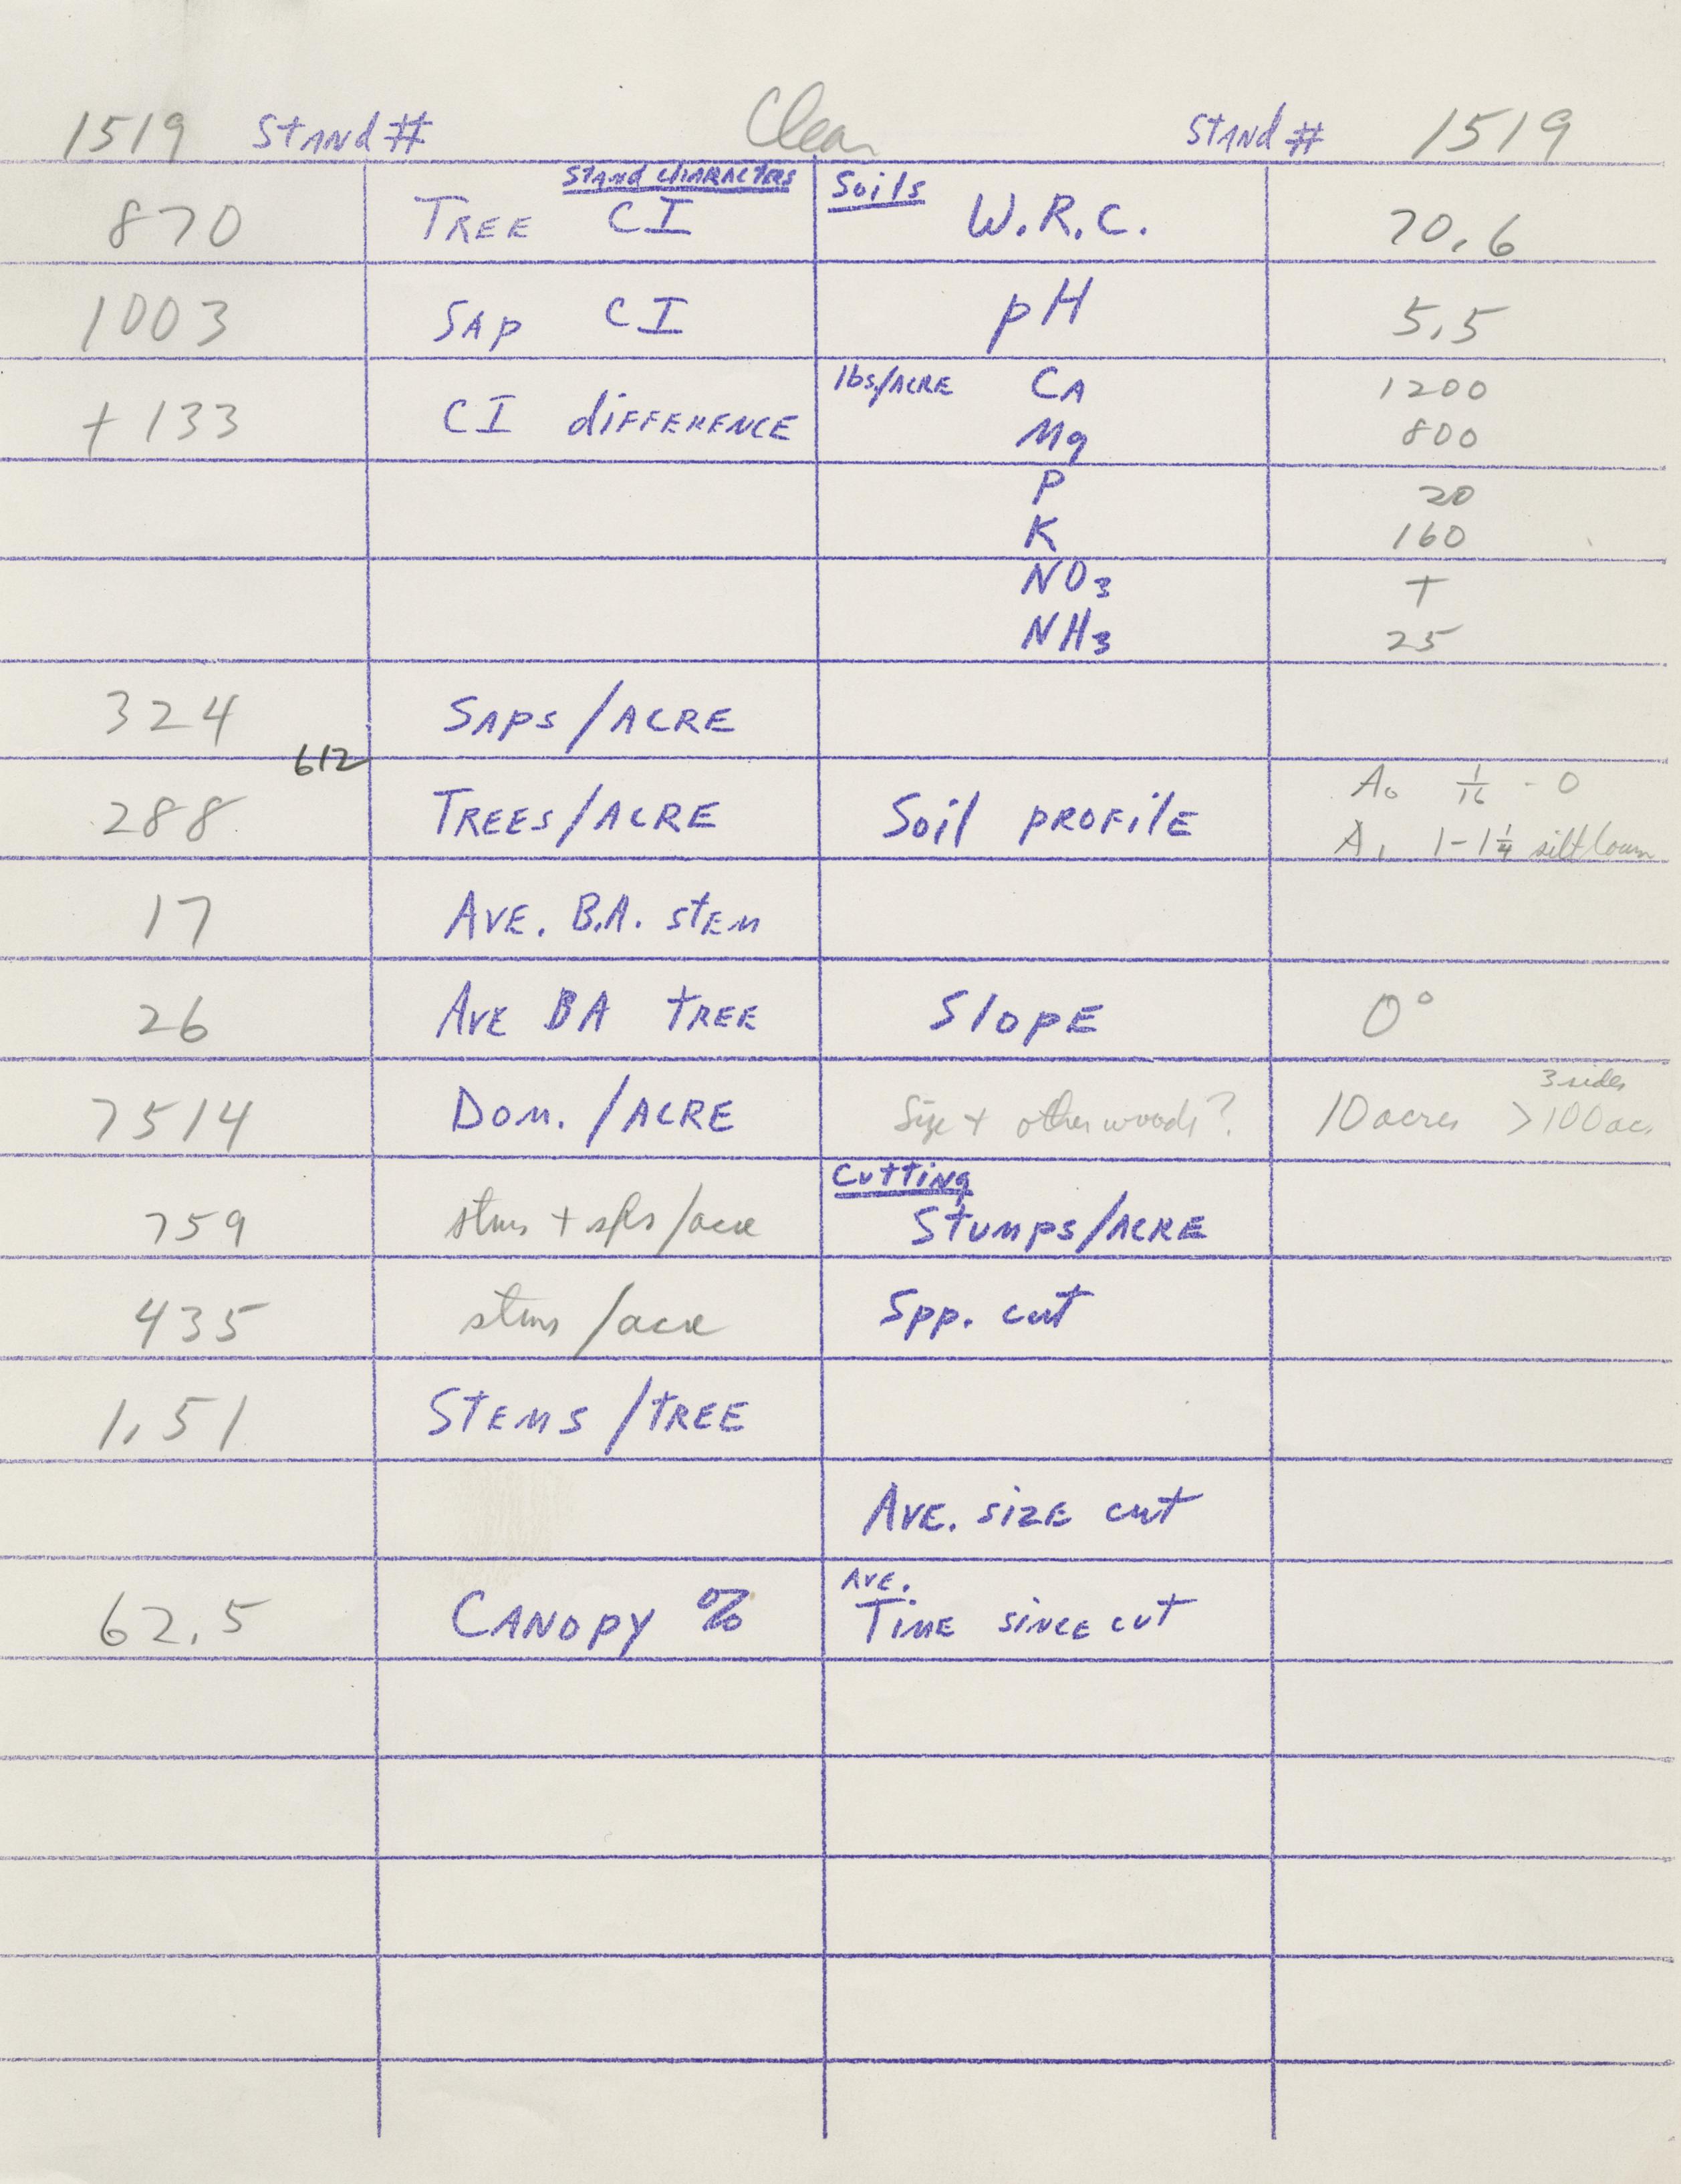 1519 Stand # Clear Stand # 1519
Stand Characters Soils
870 Tree CI W.R.C. 70.6
1003 Sap CI pH 5.5
+133 CI difference lbs/acre Ca 1200
Mg 800
P 20
K 160
NO3 +
NH3 25
324 Saps/acre
612
288 Trees/acre Soil profile A0 1/16 - 0
A1 1-1 1/4 silt loam
17 Ave. B.A. stem
26 Ave BA tree Slope 0°
7514 Dom./acre Size + other woods? 10 acres 3 sides >100 ac.
Cutting
759 stms + spls/acre Stumps/acre
435 stms/acre Spp. cut
1.51 Stems/tree
Ave. size cut
62.5 Canopy % Ave. Time since cut